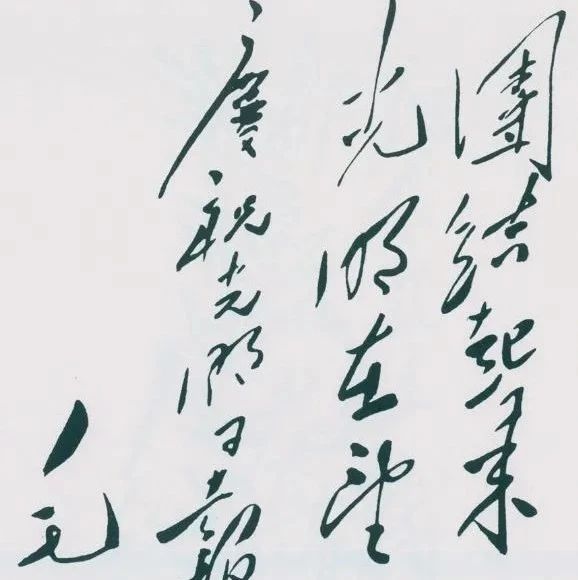 團結起來
光明在望
慶祝光明日報
毛